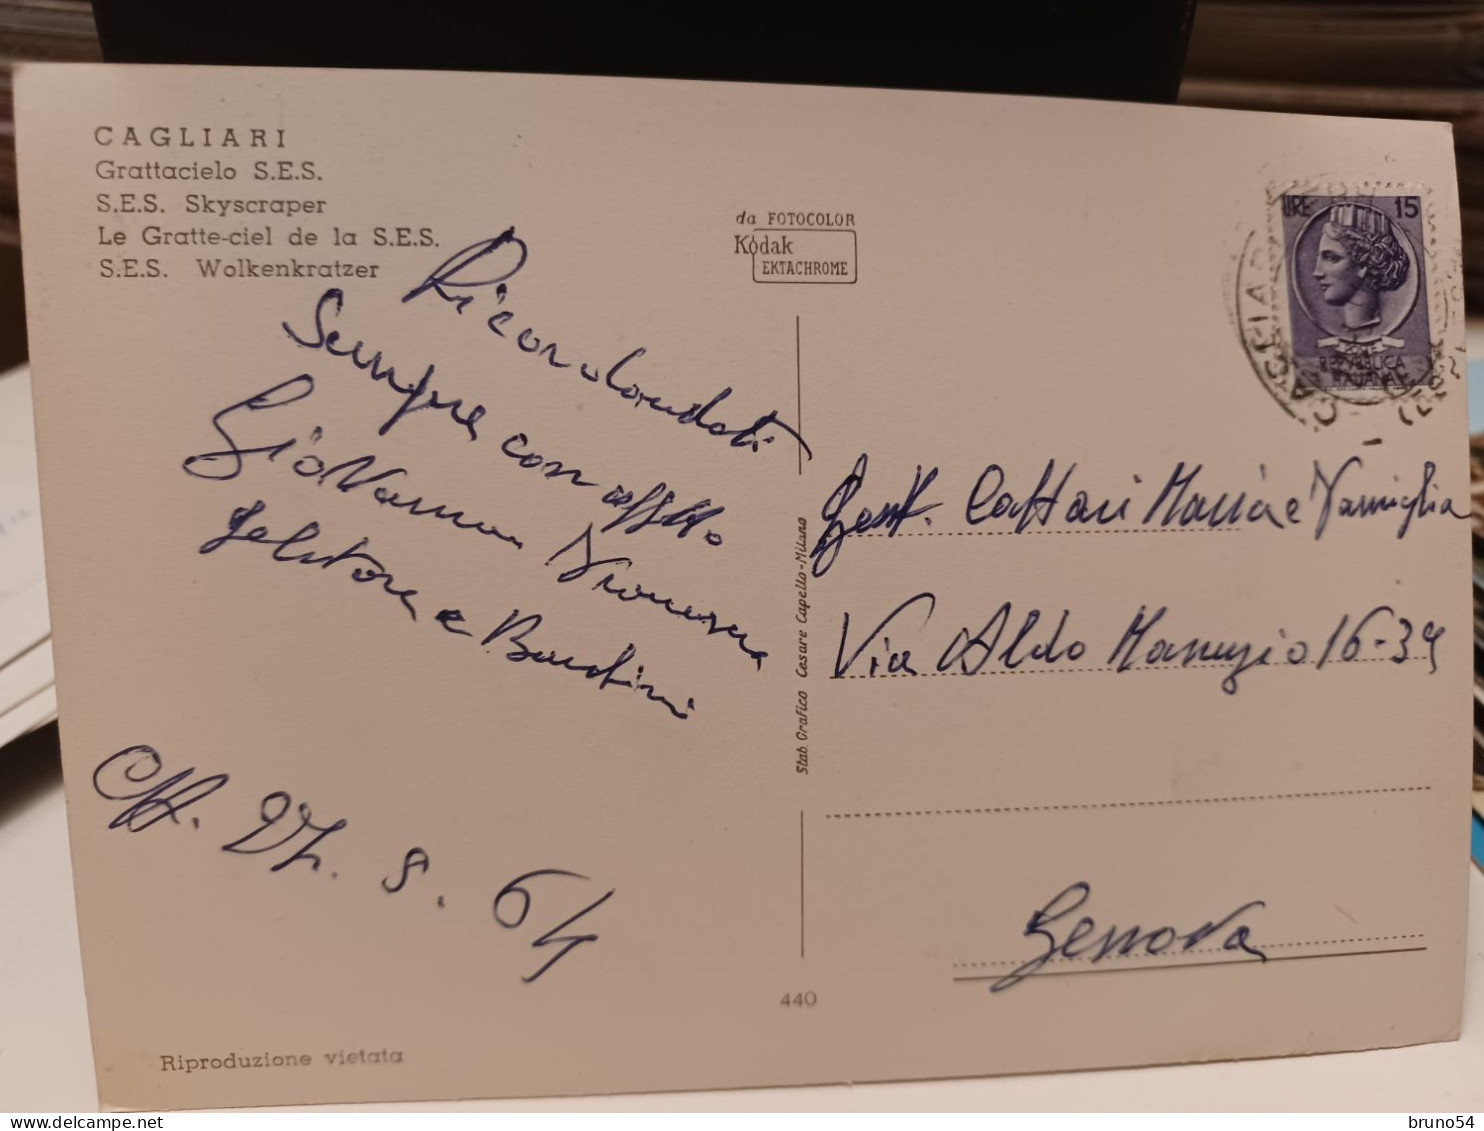 CAGLIARI
Grattacielo S.E.S.
S.E.S. Skyscraper
Le Gratte-ciel de la S.E.S.
S.E.S. Wolkenkratzer
da FOTOCOLOR
Kodak
EKTACHROME
LIRE 15
REPVBBLICA
ITALIANA
Ricordandoti
Sempre con affetto
Giovanna
Salvatore e
27. 5. 64
Stab. Grafico Cesare Capello - Milano
Gent. Cattari Maria e Famiglia
Via Aldo Manuzio 16-34
Genova
440
Riproduzione vietata
bruno54